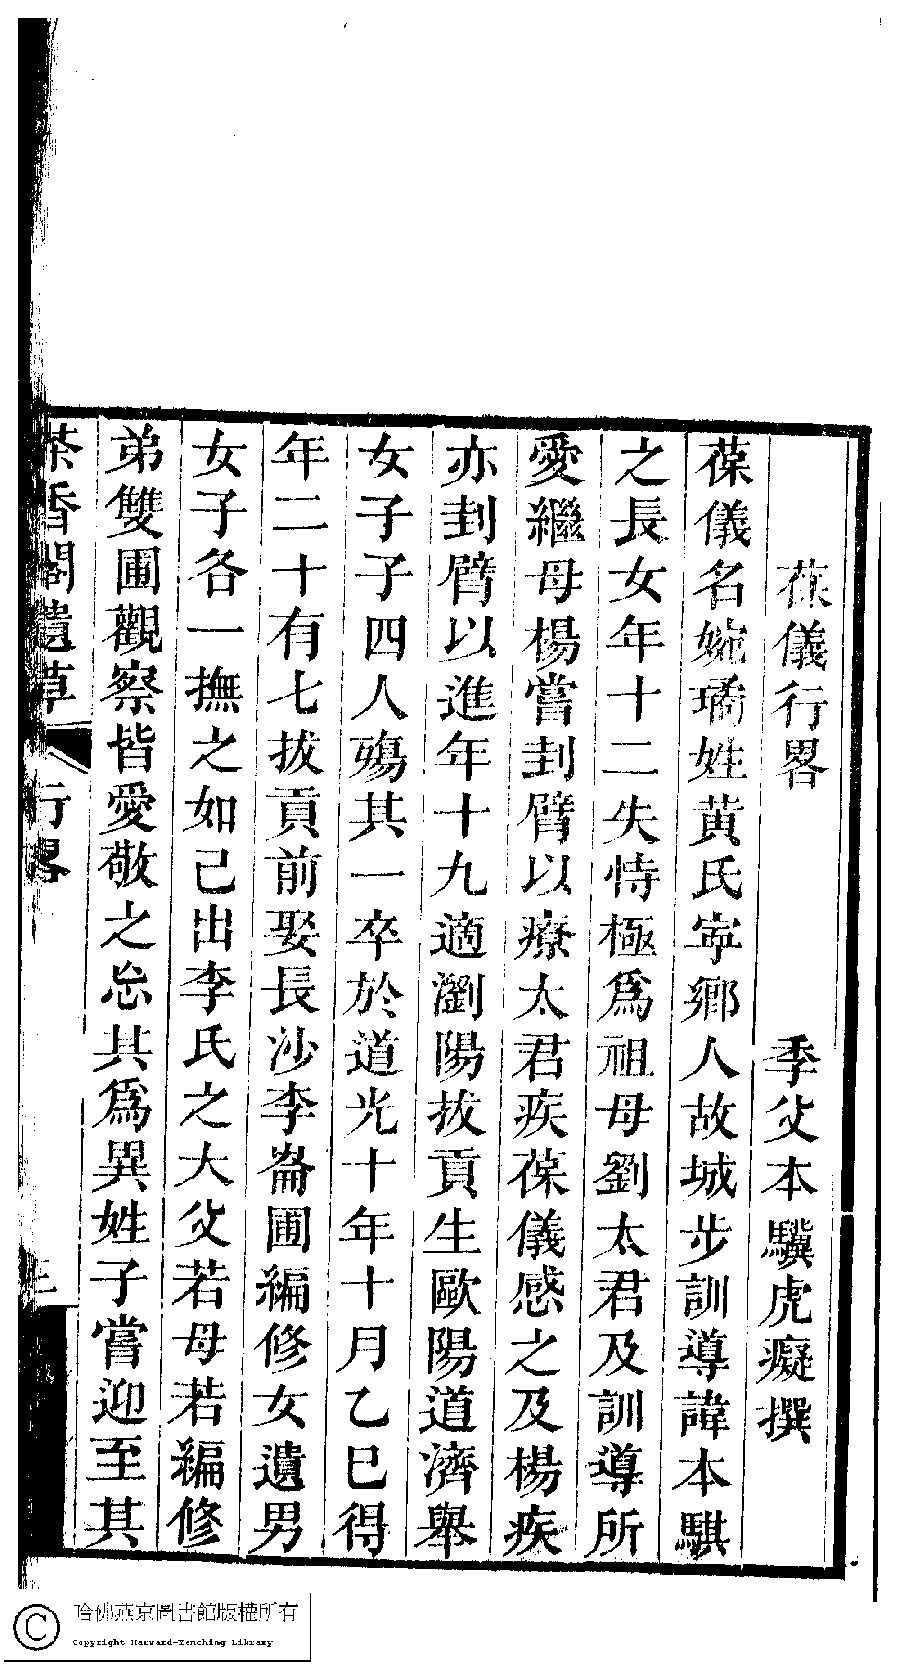 葆儀行畧
季父本驥虎癡撰
葆儀名婉璚姓黃氏寜鄉人故城步訓導諱本騏
之長女年十二失恃極爲祖母劉太君及訓導所
愛繼母楊嘗刲臂以療太君疾葆儀感之及楊疾
亦刲臂以進年十九適瀏陽拔貢生歐陽道濟舉
女子子四人殤其一卒於道光十年十月乙巳得
年二十有七拔貢前娶長沙李崙圃編修女遺男
女子各一撫之如己出李氏之大父若母若編修
弟雙圃觀察皆愛敬之忘其爲異姓子嘗迎至其
茶香閣遺草
行畧
三
哈佛燕京圖書館版權所有
Copyright Harvard-Yenching Library